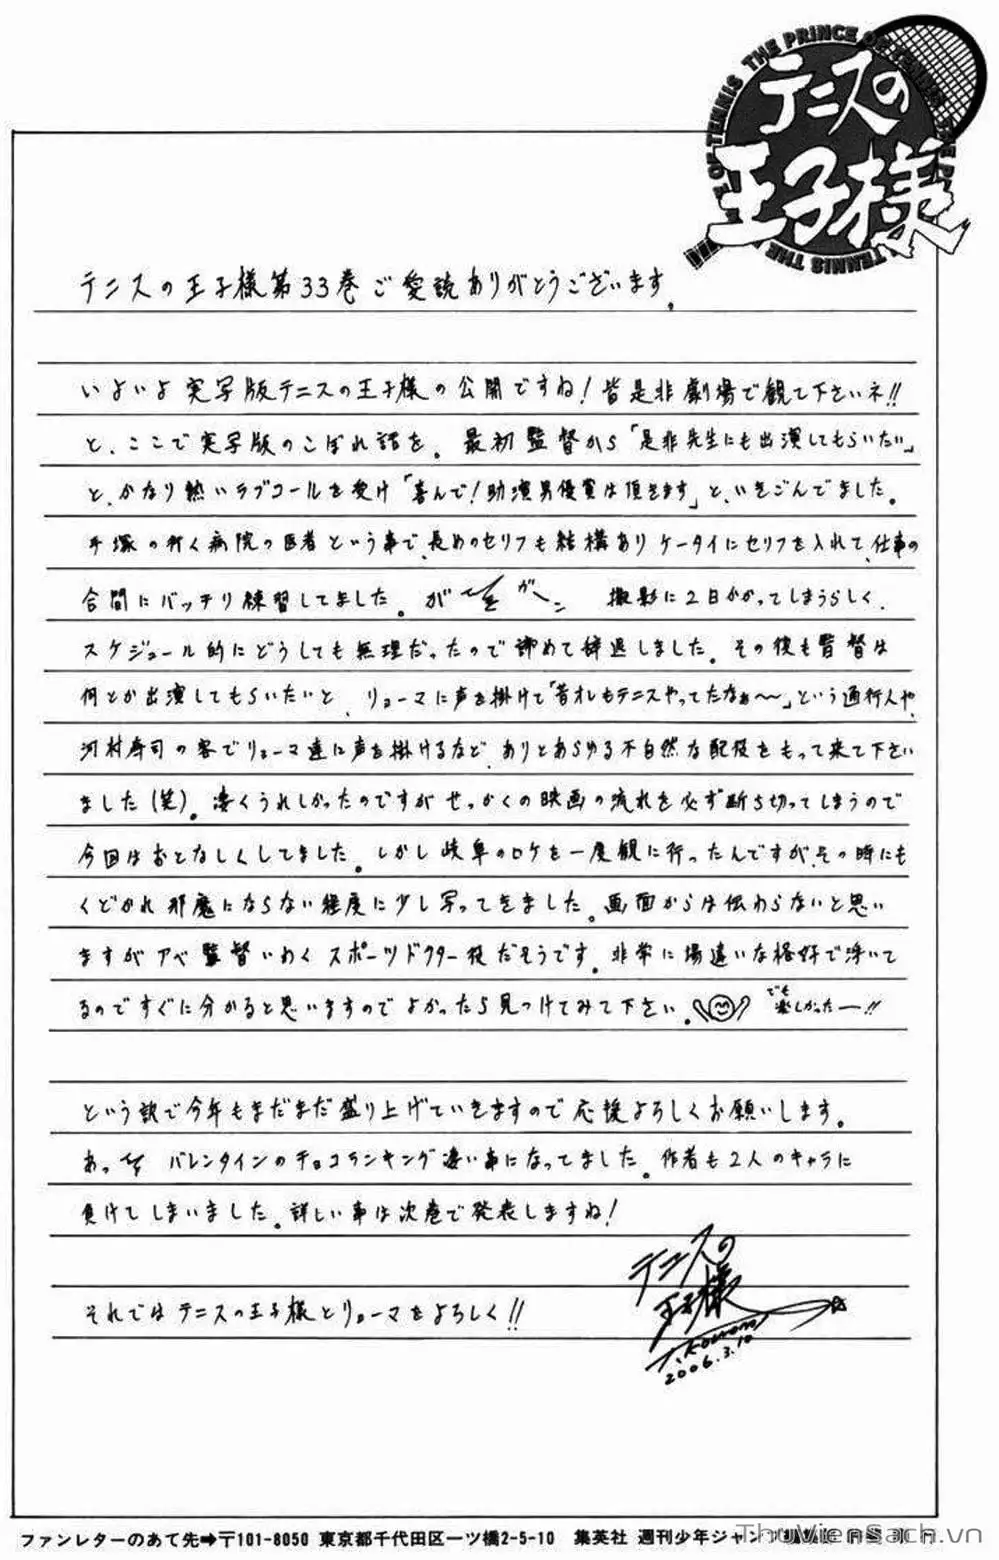 THE PRINCE OF TENNIS
テニスの
王子様
テニスの王子様第33巻ご愛読ありがとうございます。
いよいよ実写版テニスの王子様の公開ですね!皆是非劇場で観て下さいネ!!
と、ここで実写版のこぼれ話を。最初監督から「是非先生にも出演してもらいたい」
と、かなり熱いラブコールを受け「喜んで!助演男優賞は頂きます」と、いきごんでました。
手塚の行く病院の医者という事で、長めのセリフも結構ありケータイにセリフを入れて、仕事の
合間にバッチリ練習してました。が 撮影に2日かかってしまうらしく、
スケジュール的にどうしても無理だったので諦めて辞退しました。その後も監督は
何とか出演してもらいたいと、リョーマに声を掛けて「昔オレもテニスやってたなぁ〜」という通行人や、
河村寿司の客でリョーマ達に声を掛けるなど、ありとあらゆる不自然な配役をもって来て下さい
ました(笑)。凄くうれしかったのですがせっかくの映画の流れを必ず断ち切ってしまうので
今回はおとなしくしてました。しかし岐阜のロケを一度観に行ったんですが、その時にも
くどかれ邪魔にならない程度に少し写ってきました。画面からは伝わらないと思い
ますがアベ監督いわくスポーツドクター役だそうです。非常に場違いな格好で浮いて
るのですぐに分かると思いますのでよかったら見つけてみて下さい。でも楽しかったー!!
という訳で今年もまだまだ盛り上げていきますので応援よろしくお願いします。
あっ バレンタインのチョコランキング凄い事になってました。作者も2人のキャラに
負けてしまいました。詳しい事は次巻で発表しますね!
それではテニスの王子様とリョーマをよろしく!!
テニスの
王子様
T.Konomi
2006.3.10
ファンレターのあて先➡〒101-8050 東京都千代田区一ツ橋2-5-10 集英社 週刊少年ジャンプ編集部
ThuVienSach.vn